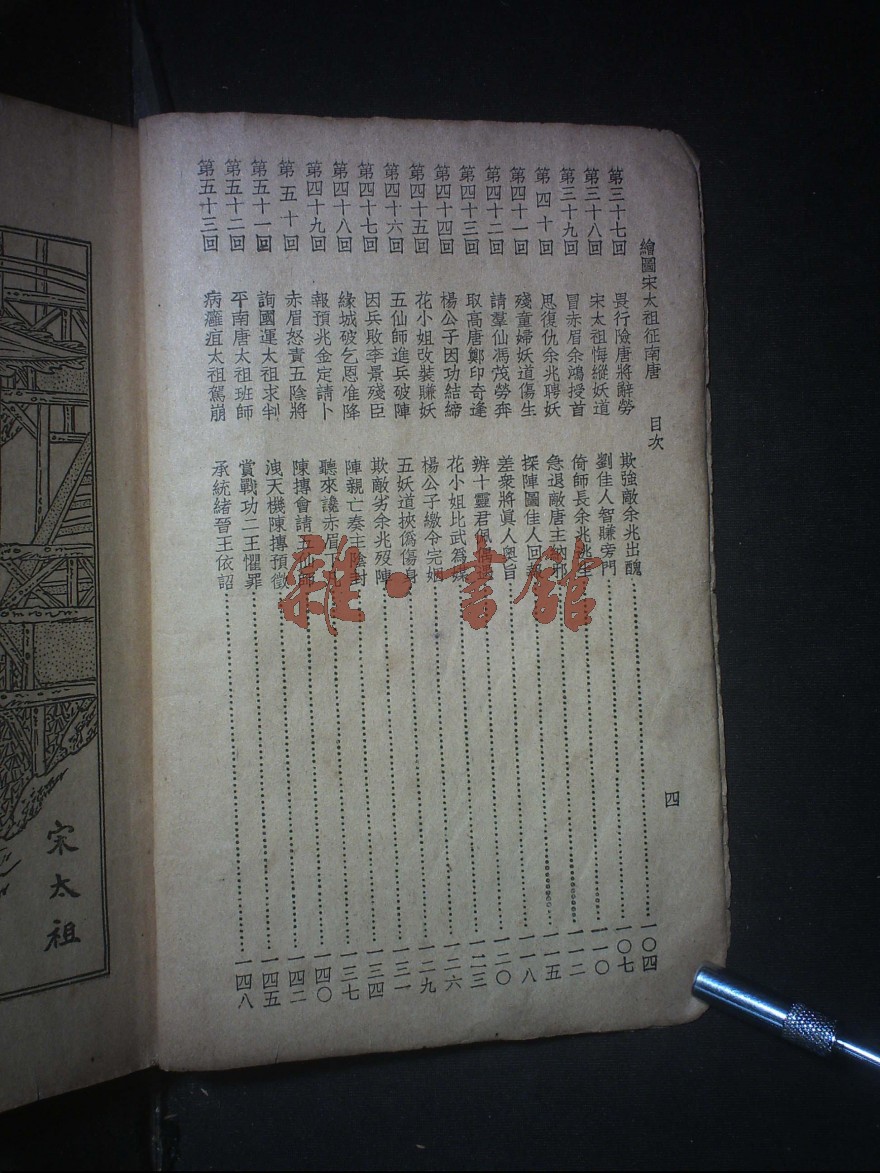 繪圖宋太祖征南唐 目次 四
第三十七回 畏行險唐將辭勞 欺強敵余兆出醜……一〇四
第三十八回 宋太祖悔縱妖道 劉佳人智賺旁門……一〇七
第三十九回 冒赤眉余鴻授首 倚師長余兆逃生……一一〇
第四十回 思復仇余兆聘妖 急退敵唐主納邪……一一二
第四十一回 殘童婦妖道傷生 探陣圖佳人回報……一一五
第四十二回 請羣仙馮茂勞奔 差衆將眞人奧旨……一一八
第四十三回 取高唐鄭印奇逢 辨十靈君佩……一二〇
第四十四回 楊公子因功結締 花小姐比武爲媒……一二三
第四十五回 花小姐改裝賺妖 楊公子繳令完姻……一二六
第四十六回 五仙師進兵破陣 五妖道挾僞傷身……一二九
第四十七回 因兵敗李景殘臣 欺敵劣余兆歿陣……一三一
第四十八回 緣城破乞恩准降 陣親亡奏主陰封……一三四
第四十九回 報預兆金定請卜 聽來讒赤眉下凡……一三七
第五十回 赤眉怒責五陰將 陳摶會請五仙師……一四〇
第五十一回 詢國運太祖求判 洩天機陳摶預徵……一四二
第五十二回 平南唐太祖班師 賞戰功二王懼罪……一四五
第五十三回 病癰疽太祖駕崩 承統緒晉王依詔……一四八
宋太祖
雜·書館